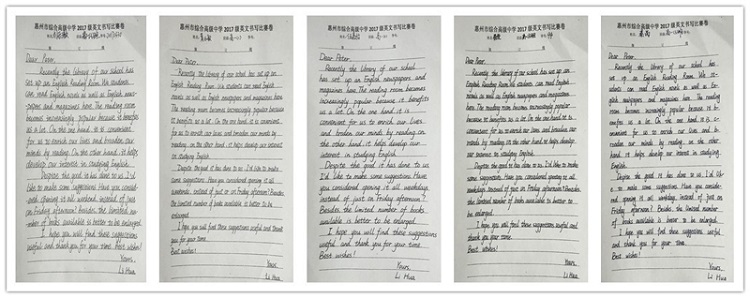 惠州市综合高级中学2017级英文书写比赛卷
Dear Peter,
Recently the library of our school has
set up an English Reading Room. We students
can read English novels as well as English news-
papers and magazines here. The reading room
becomes increasingly popular because it benefits
us a lot. On the one hand it is convenient
for us to enrich our lives and broaden our
minds by reading, on the other hand, it helps
develop our interest in studying English.
Despite the good it has done to us, I'd
like to make some suggestions. Have you consid-
ered opening it all weekend, instead of just
on Friday afternoon? Besides, the limited
number of books available is better to be enlarged.
I hope you will find these suggestions
useful and thank you for your time. Best wishes!
Yours,
Li Hua
惠州市综合高级中学2017级英文书写比赛卷
Dear Peter,
Recently the library of our school has set up an
English Reading Room. We students can read English
novels as well as English newspapers and magazines here.
The reading room becomes increasingly popular because
it benefits us a lot. On the one hand it is convenient
for us to enrich our lives and broaden our minds by
reading, on the other hand, it helps develop our interest
in studying English.
Despite the good it has done to us, I'd like to make
some suggestions. Have you considered opening it all
weekends instead of just on Friday afternoon? Besides,
the limited number of books available is better to be
enlarged.
I hope you will find these suggestions useful and thank
you for your time.
Best wishes!
Yours,
Li Hua
惠州市综合高级中学2017级英文书写比赛卷
Dear Peter,
Recently the library of our school
has set up an English newspapers and
magazines here. The reading room becomes
increasingly popular because it benefits
us a lot. On the one hand it is
convenient for us to enrich our lives,
and broaden our minds by reading on
the other hand, it helps develop our
interest in studying English.
Despite the good it has done to us,
I'd like to make some suggestions. Have
you considered opening it all weekdays
instead of just on Friday afternoon?
Besides the limited number of books
available is better to be enlarged.
I hope you will find these suggestions
useful and thank you for your time.
Best wishes!
Yours
Li Hua
惠州市综合高级中学2017级英文书写比赛卷
Dear Peter,
Recently the library of our school has set up an
English Reading Room. We students can read English
novels as well as English newspapers and magazines here.
The reading room becomes increasingly popular
because it benefits us a lot. On the one hand it is
convenient for us to enrich our lives and broaden our
minds by reading, on the other hand, it helps develop
our interest in studying English.
Despite the good it has done to us, I'd like to make
some suggestions. Have you considered opening it all
weekends instead of just on Friday afternoon? Besides,
the limited number of books available is better to
be enlarged.
I hope you will find these suggestions useful and
thank you your time.
Best wishes!
Yours,
Li Hua
惠州市综合高级中学2017级英文书写比赛卷
Dear Peter,
Recently the library of our school has
set up an English Reading Room. We
students can read English novels as well as En-
glish newspapers and magazines here. The reading
room becomes increasingly popular because it be-
nefits us a lot. On the one hand it is con-
venient for us to enrich our lives and b-
roaden our mind by reading, on the other
hand it helps develop our interest in studying
English.
Despite the good it has done to us, I'd lik-
e to make some suggestions. Have you consid-
ered opening it all weekends, instead of just on
Friday afternoon? Besides, the limited number
of books available is better to be enlarged.
I hope you will find these suggestions useful
and thank you for your time.
Best wishes!
Yours,
Li Hua